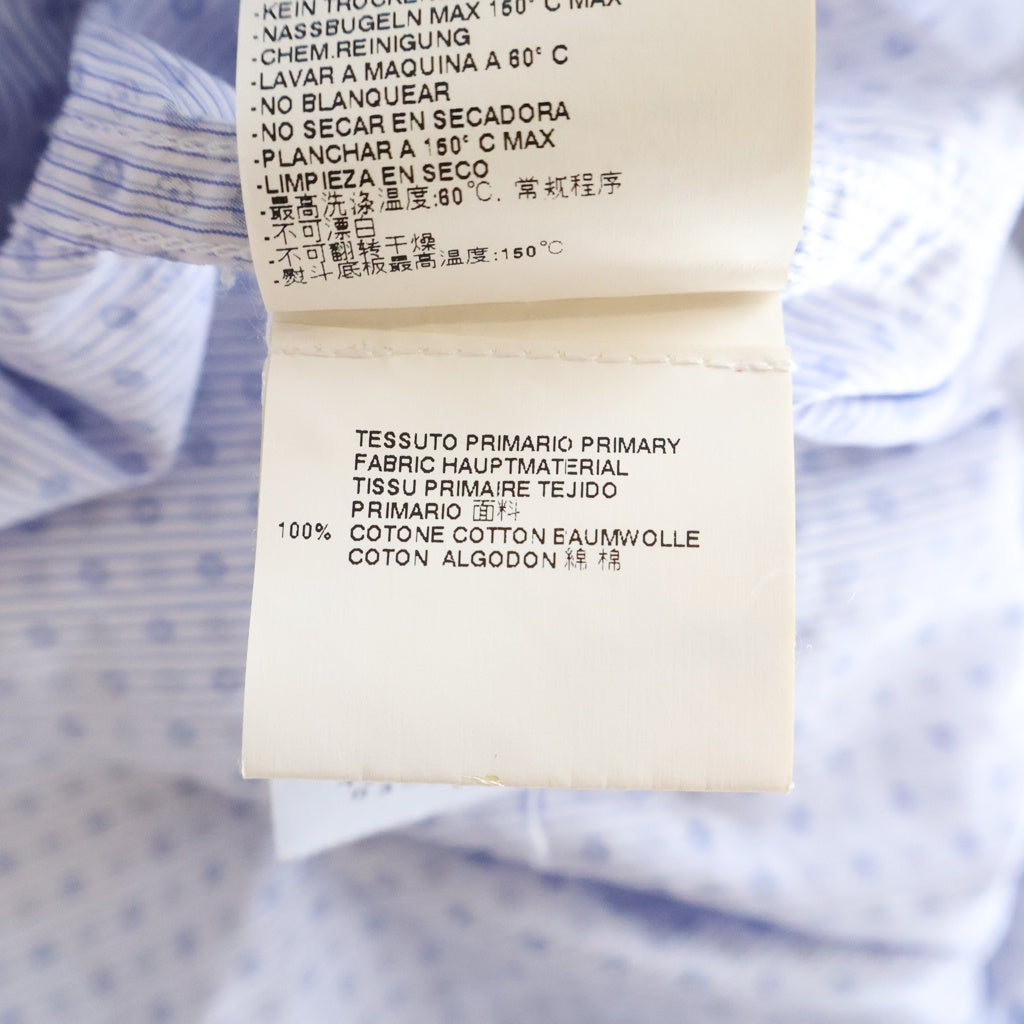 -KEIN
-NASSBUGELN MAX 150° C MAX
-CHEM.REINIGUNG
-LAVAR A MAQUINA A 60° C
-NO BLANQUEAR
-NO SECAR EN SECADORA
-PLANCHAR A 150° C MAX
-LIMPIEZA EN SECO
-最高洗涤温度:60℃. 常规程序
-不可漂白
-不可翻转干燥
-熨斗底板最高温度:150℃
TESSUTO PRIMARIO PRIMARY
FABRIC HAUPTMATERIAL
TISSU PRIMAIRE TEJIDO
PRIMARIO 面料
100% COTONE COTTON BAUMWOLLE
COTON ALGODON 綿 棉